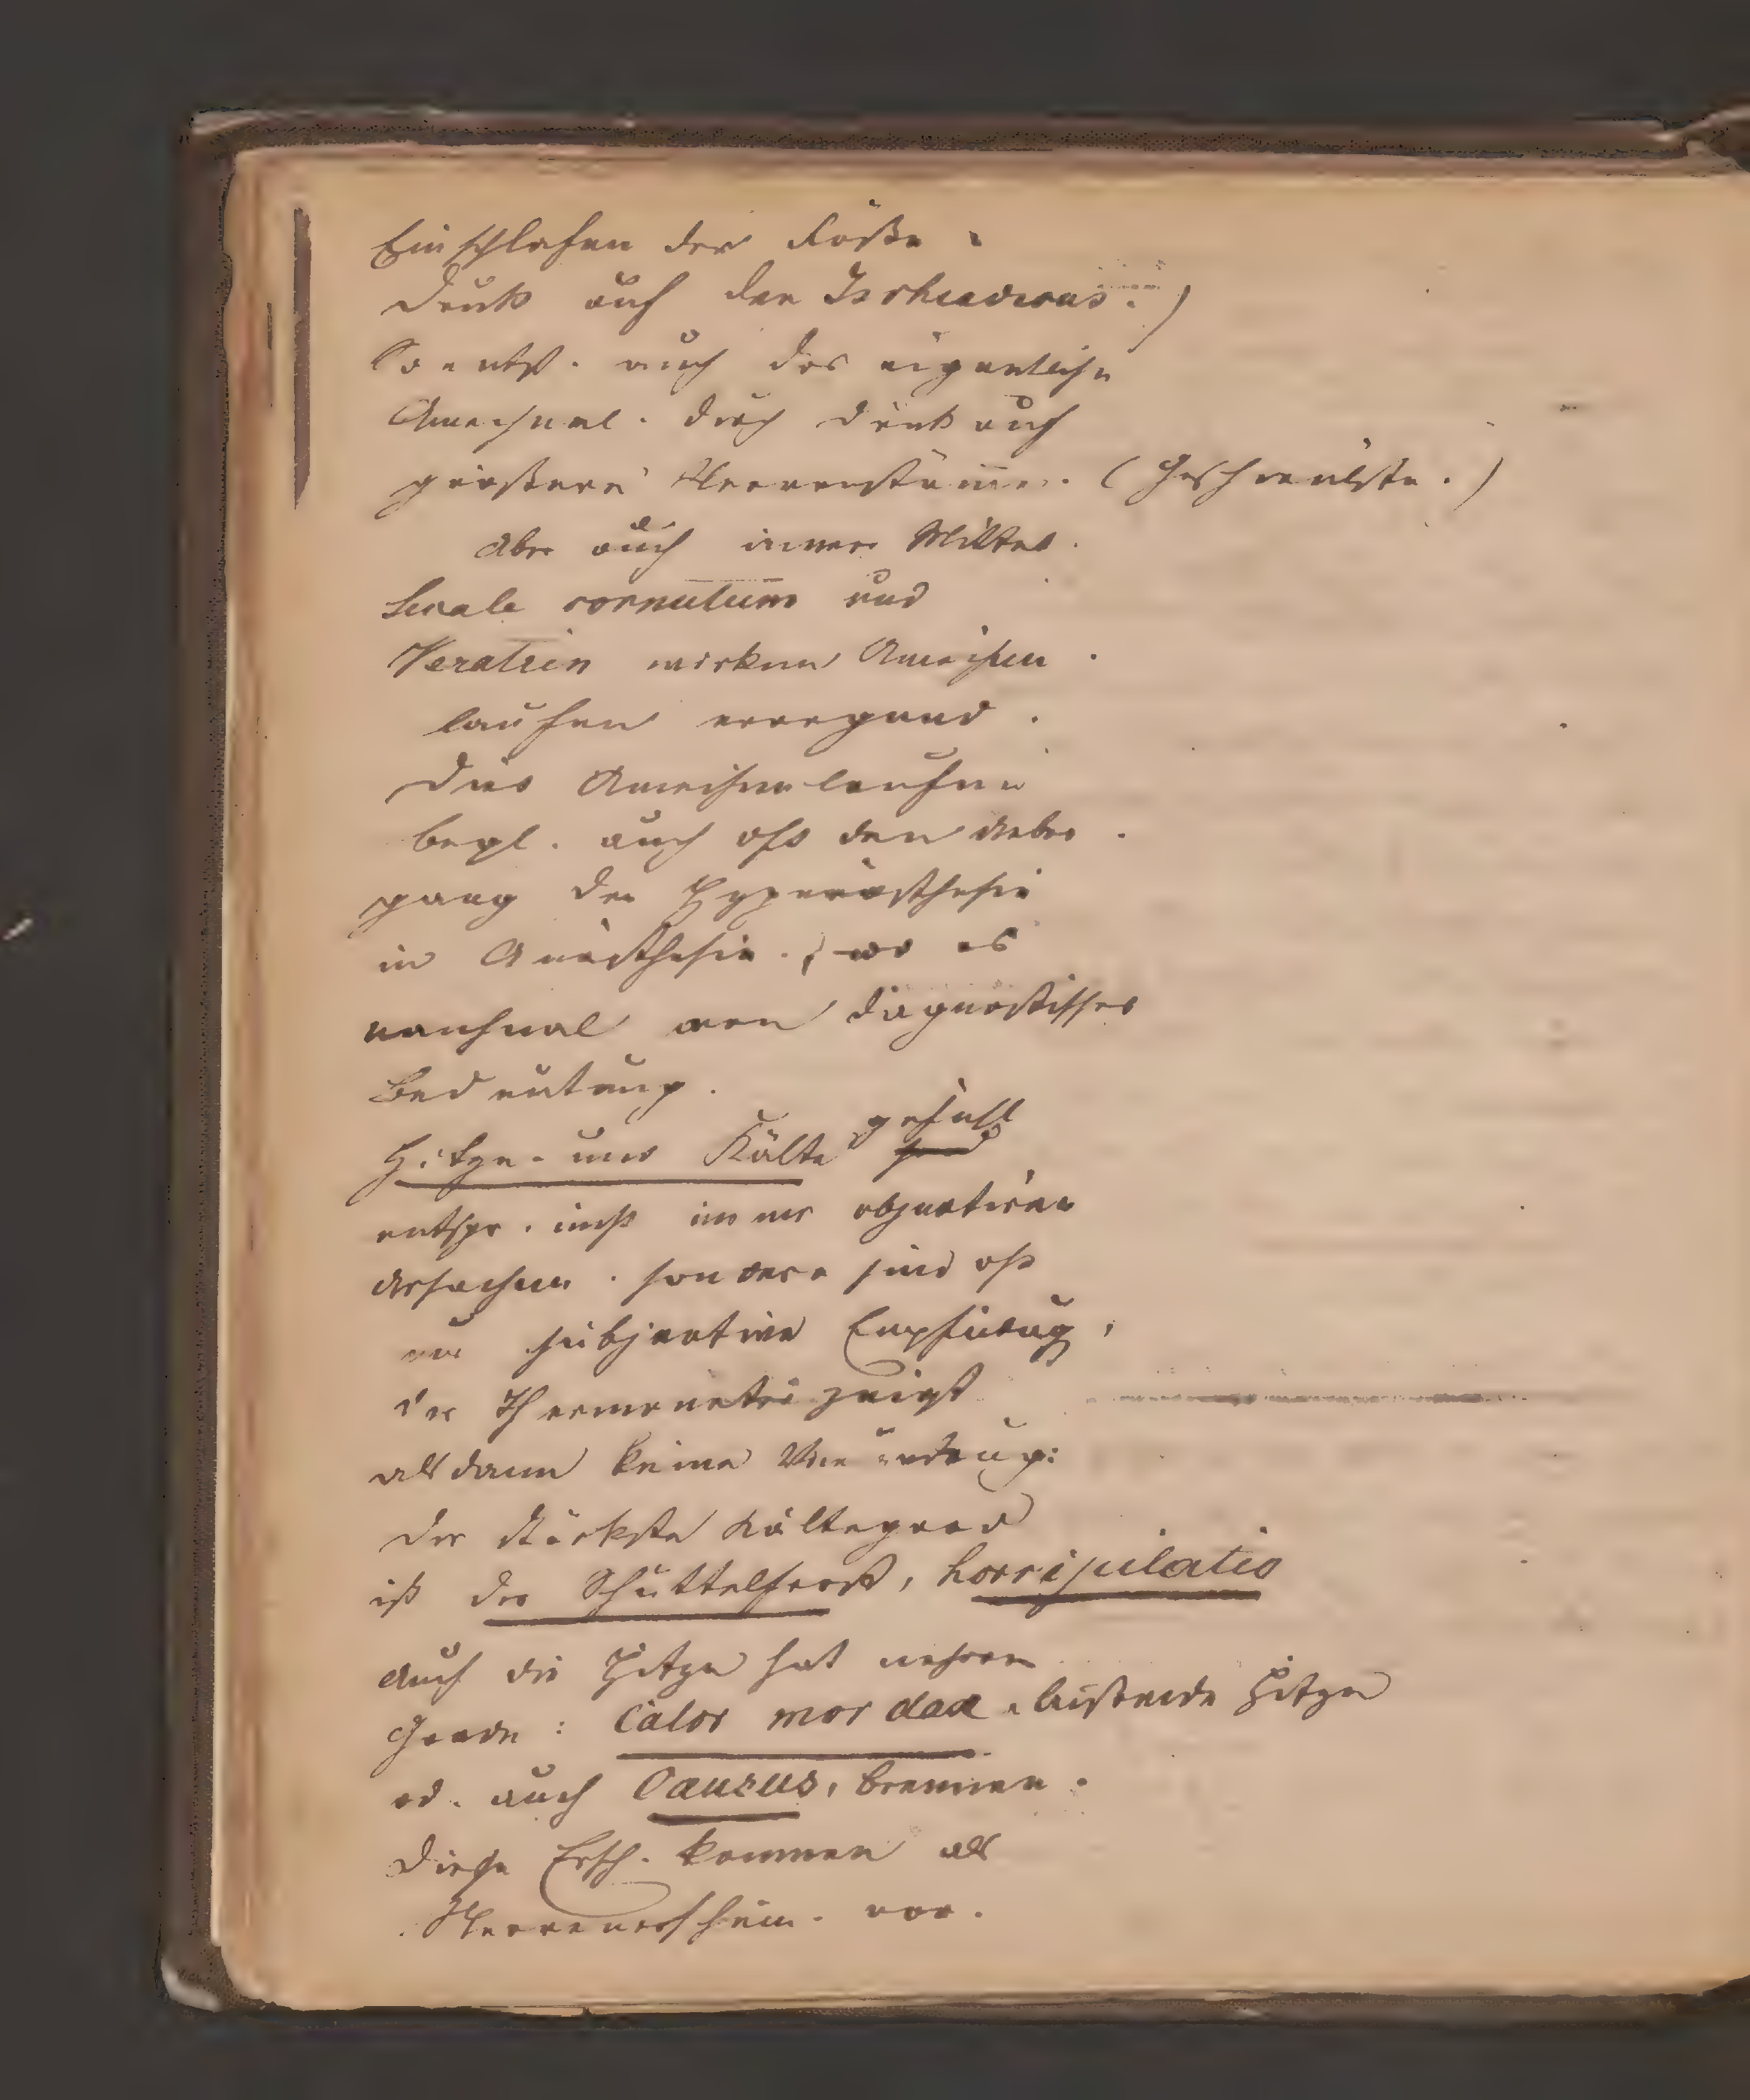 Einschlafen der Füße.
Druck auf den Ischiadicus.)
So entst. auch das eigentliche
Ameisenl. durch Druck auf
größere Nervenstämme. (Geschwülste.)
Aber auch innere Mittel.
Secale cornutum und
Veratrin wirken Ameisen
laufen erregend.
Dies Ameisenlaufen
begl. auch oft den Ueber
gang der Hyperästhesie
in Anästhesie, wo es
manchmal von diagnostischer
Bedeutung.
Hitze- und Kälte gefühl
entspr. nicht immer objectiven
Ursachen. sondern sind oft
nur subjective Empfindung,
der Thermometer zeigt
alsdann keine Veränderung:
Der stärkste Kältegrad
ist der Schüttelfrost, horripilatio
Auch die Hitze hat mehrere
Grade: Calor mordax, beißende Hitze
od. auch Causus, brennen.
Diese Ersch. kommen als
Nervenerschein. vor.